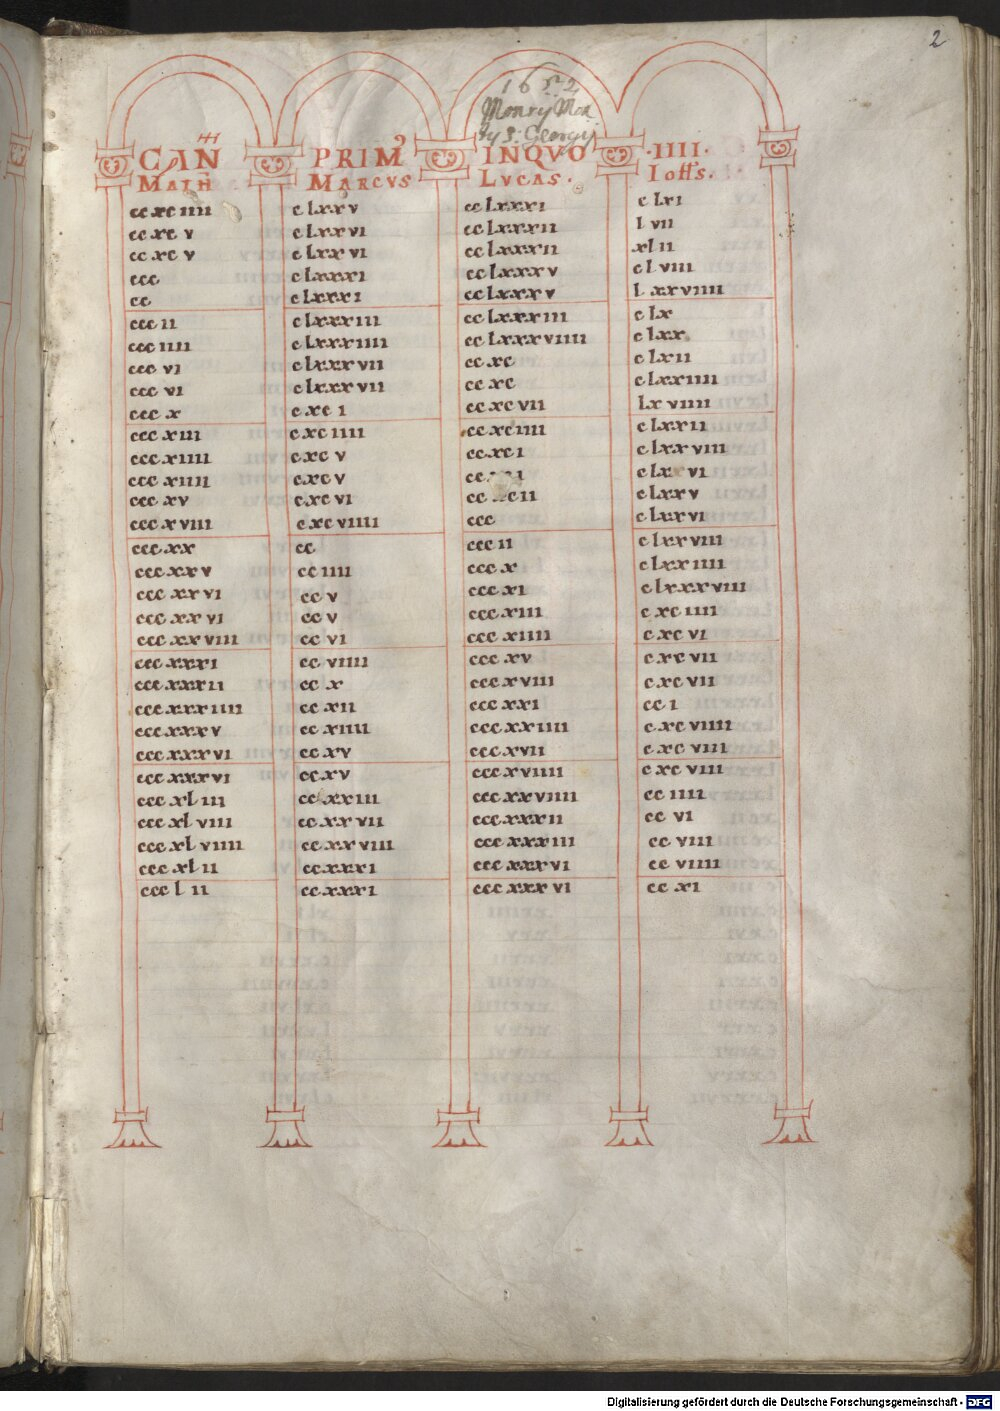 2
CAN PRIM INQVO ·IIII·
MATH MARCVS LVCAS· IOHS·
cc xc iiii c lxxv cc lxxxi c lxi
cc xc v c lxx vi cc lxxxii l vii
cc xc v c lxx vi cc lxxxii xl ii
ccc c lxxxi cc lxxx v c l viii
cc c lxxxi cc lxxx v l xxviiii
ccc ii c lxxxiii cc lxxxiii c lx
ccc iiii c lxxxiiii cc lxxxviiii c lxx
ccc vi c lxxxvii cc xc c lxii
ccc vi c lxxxvii cc xc c lxxiiii
ccc x c xc i cc xc vii lx viiii
ccc xiii c xc iiii cc xc iiii c lxxii
ccc xiiii c xc v cc xc i c lxx viii
ccc xiiii c xc v c lxx vi
ccc xv c xc vi cc xc ii c lxxv
ccc xviii c xc viiii ccc c lxxvi
ccc xx cc ccc ii c lxxviii
ccc xx v cc iiii ccc x c lxx iiii
ccc xx vi cc v ccc xi c lxxxviiii
ccc xx vi cc v ccc xiii c xc iiii
ccc xx viii cc vi ccc xiiii c xc vi
ccc xxxi cc viiii ccc xv c xc vii
ccc xxxii cc x ccc xviii c xc vii
ccc xxxiiii cc xii ccc xxi cc i
ccc xxxv cc xiiii ccc xxiiii c xc viiii
ccc xxxvi cc xv ccc xvii c xc viii
ccc xxxvi cc xv ccc xviiii c xc viii
ccc xl iii cc xxiii ccc xxviiii cc iiii
ccc xl viii cc xx vii ccc xxxii cc vi
ccc xl viiii cc xx viii ccc xxxiii cc viii
ccc xl ii cc xxxi ccc xxxvi cc viiii
ccc l ii cc xxxi ccc xxx vi cc xi
Digitalisierung gefördert durch die Deutsche Forschungsgemeinschaft - DFG